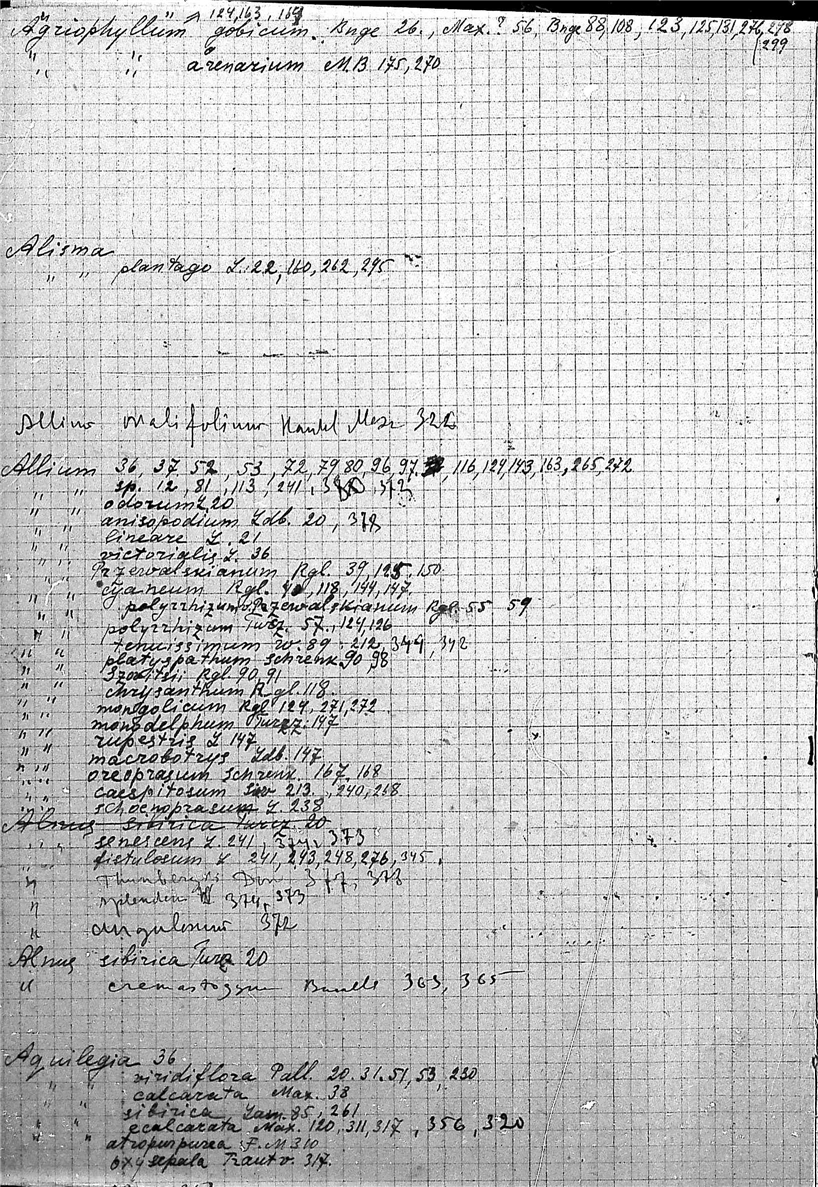 124, 163, 164
Agriophyllum gobicum. Bnge 26., Max.? 56, Bnge 88, 108, 123, 125, 131, 276, 278
299
" " arenarium M.B 175, 270
Alisma
" " plantago L. 22, 160, 262, 295
Allium ovalifolium Handel Mazz 322
Allium 36, 37, 52, 53, 72, 79, 80, 96, 97, 116, 124, 143, 163, 265, 272
" " sp. 12, 81, 113, 241, 312
" " odorum L 20
" " anisopodium Ldb. 20, 378
" " lineare L. 21
" " victorialis L. 36
" " Przewalskianum Rgl. 39, 125, 150
" " cyaneum Rgl. 118, 144, 147
" " polyrrhizum Przewalskianum Rgl. 55 59
" " polyrrhizum Turcz. 57, 124, 126
" " tenuissimum W. 89. 212, 344, 342
" " platyspathum Schrenk 90, 98
" " Szovitsii Rgl 90, 91
" " chrysanthum Rgl. 118.
" " mongolicum Rgl 124, 271, 272
" " monadelphum Turcz. 147
" " rupestris L 147
" " macrobotrys Ldb. 147
" " oreoprasum Schrenk. 167, 168
" " caespitosum Siv 213, 240, 268
" " schoenoprasum L. 238
Alnus sibirica Turcz 20
" " senescens L 241, 371, 373
" " fistulosum L 241, 243, 248, 276, 345.
" Thunbergii Don 377, 378
" splendens W 374, 373
" angulosum 372
Alnus sibirica Turcz 20
" cremastogyne Burkill 363, 365
Aquilegia 36
" " viridiflora Pall. 20. 31. 51, 53, 230
" " calcarata Max. 38
" " sibirica Lam. 85, 261
" " ecalcarata Max. 120, 311, 317, 356, 320
atropurpurea F. M 310
oxysepala Trautv. 317.